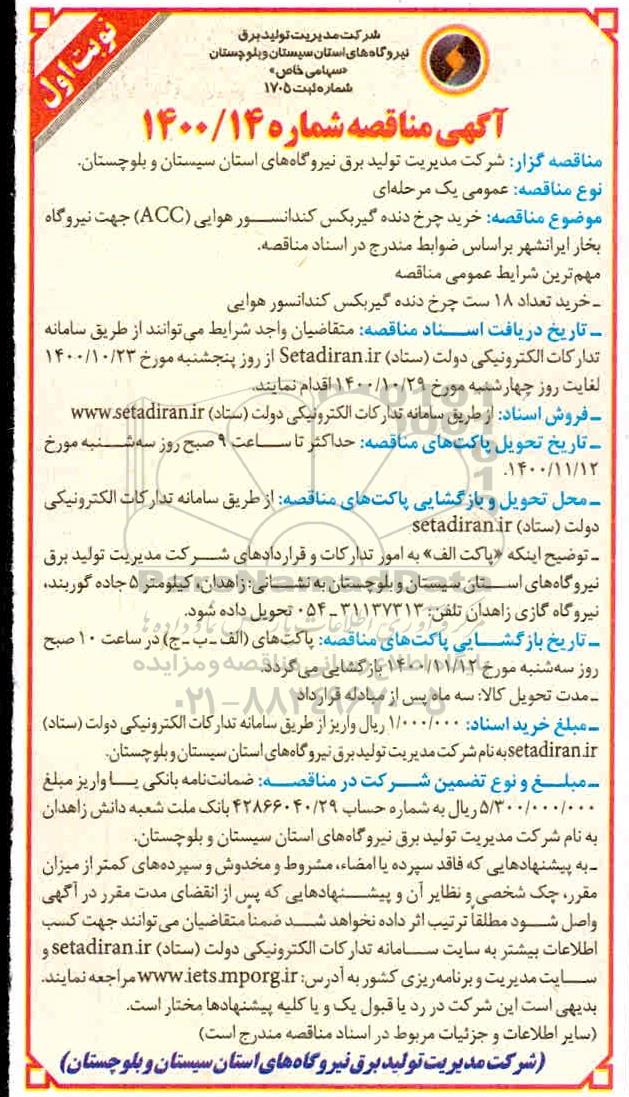 نوبت اول
شرکت مدیریت تولید برق
نیروگاه‌های استان سیستان و بلوچستان
«سهامی خاص»
شماره ثبت ۱۷۰۵
آگهی مناقصه شماره ۱۴۰۰/۱۴
مناقصه گزار: شرکت مدیریت تولید برق نیروگاه‌های استان سیستان و بلوچستان.
نوع مناقصه: عمومی یک مرحله‌ای
موضوع مناقصه: خرید چرخ دنده گیربکس کندانسور هوایی (ACC) جهت نیروگاه
بخار ایرانشهر براساس ضوابط مندرج در اسناد مناقصه.
مهم‌ترین شرایط عمومی مناقصه
ـ خرید تعداد ۱۸ ست چرخ دنده گیربکس کندانسور هوایی
ـ تاریخ دریافت اسناد مناقصه: متقاضیان واجد شرایط می‌توانند از طریق سامانه
تدارکات الکترونیکی دولت (ستاد) Setadiran.ir از روز پنجشنبه مورخ ۱۴۰۰/۱۰/۲۳
لغایت روز چهارشنبه مورخ ۱۴۰۰/۱۰/۲۹ اقدام نمایند.
ـ فروش اسناد: از طریق سامانه تدارکات الکترونیکی دولت (ستاد) www.setadiran.ir
ـ تاریخ تحویل پاکت‌های مناقصه: حداکثر تا ساعت ۹ صبح روز سه‌شنبه مورخ
۱۴۰۰/۱۱/۱۲.
ـ محل تحویل و بازگشایی پاکت‌های مناقصه: از طریق سامانه تدارکات الکترونیکی
دولت (ستاد) setadiran.ir
ـ توضیح اینکه «پاکت الف» به امور تدارکات و قراردادهای شرکت مدیریت تولید برق
نیروگاه‌های استان سیستان و بلوچستان به نشانی: زاهدان، کیلومتر ۵ جاده گوربند،
نیروگاه گازی زاهدان تلفن: ۳۱۱۳۷۳۱۳ ـ ۰۵۴ تحویل داده شود.
ـ تاریخ بازگشایی پاکت‌های مناقصه: پاکت‌های (الف ـ ب ـ ج) در ساعت ۱۰ صبح
روز سه‌شنبه مورخ ۱۴۰۰/۱۱/۱۲ بازگشایی می‌گردد.
ـ مدت تحویل کالا: سه ماه پس از مبادله قرارداد
ـ مبلغ خرید اسناد: ۱/۰۰۰/۰۰۰ ریال واریز از طریق سامانه تدارکات الکترونیکی دولت (ستاد)
setadiran.ir به نام شرکت مدیریت تولید برق نیروگاه‌های استان سیستان و بلوچستان.
ـ مبلغ و نوع تضمین شرکت در مناقصه: ضمانت‌نامه بانکی یا واریز مبلغ
۵/۳۰۰/۰۰۰/۰۰۰ ریال به شماره حساب ۴۲۸۶۶۰۴۰/۲۹ بانک ملت شعبه دانش زاهدان
به نام شرکت مدیریت تولید برق نیروگاه‌های استان سیستان و بلوچستان.
ـ به پیشنهادهایی که فاقد سپرده یا امضاء، مشروط و مخدوش و سپرده‌های کمتر از میزان
مقرر، چک شخصی و نظایر آن و پیشنهادهایی که پس از انقضای مدت مقرر در آگهی
واصل شود مطلقاً ترتیب اثر داده نخواهد شد ضمناً متقاضیان می‌توانند جهت کسب
اطلاعات بیشتر به سایت سامانه تدارکات الکترونیکی دولت (ستاد) setadiran.ir و
سایت مدیریت و برنامه‌ریزی کشور به آدرس: www.iets.mporg.ir مراجعه نمایند.
بدیهی است این شرکت در رد یا قبول یک و یا کلیه پیشنهادها مختار است.
(سایر اطلاعات و جزئیات مربوط در اسناد مناقصه مندرج است)
(شرکت مدیریت تولید برق نیروگاه‌های استان سیستان و بلوچستان)